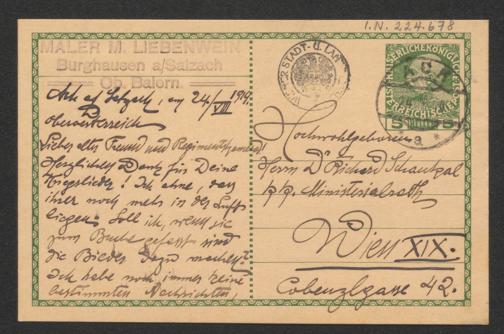 I.N. 224.678
MALER M. LIEBENWEIN
Burghausen a/Salzach
Ob. Baiern.
Ach a/ Salzach, am 24/VIII 191
Oberoesterreich
Lieber alter Freund und
Herzlichsten Dank für Deine
Kriegslieder! Ich ahne, dass
ihrer noch mehr in der Luft
liegen. Soll ich, wenn sie
zum Buche gefasst sind
die Bilder dazu machen?
Ich habe noch immer keine
bestimmten Nachrichten,
WIENER STADT- U.
KAISERLICHEKÖNIGLICHE
ÖSTERREICHISCHE
5
ACH
Hochwohlgeboren
Herrn Dr Richard Schaukal
k. k. Ministerialrath
Wien XIX.
Cobenzlgasse 42.